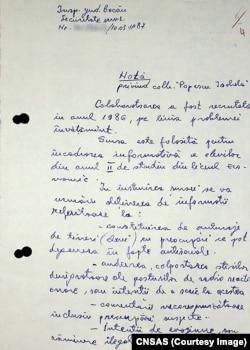 Insp. jud. Bacău
Securitate
No. /10.03.1987
1/4
Notă
privind colb. "Popescu Isabela"
Colaboratoarea a fost recrutată
în anul 1986, pe linia problemei
învățământ.
Sursa este folosită pentru
încadrarea informativă a elevilor
din anul II de studiu din liceul Eco-
nomic.
În instruirea sursei se va
urmări obținerea de informații
referitoare la :
- constituirea de anturaje
de tineri (elevi) cu preocupări ce pot
degenera în fapte antisociale.
- audierea, colportarea știrilor
denigratoare ale posturilor de radio reacți-
onare, sau intenții de a scrie la acestea
- comentarii necorespunzătoare
inclusiv preocupări suspecte.
- Intenții de evaziune, sau
rămânere ilegală
CNSAS (Courtesy Image)